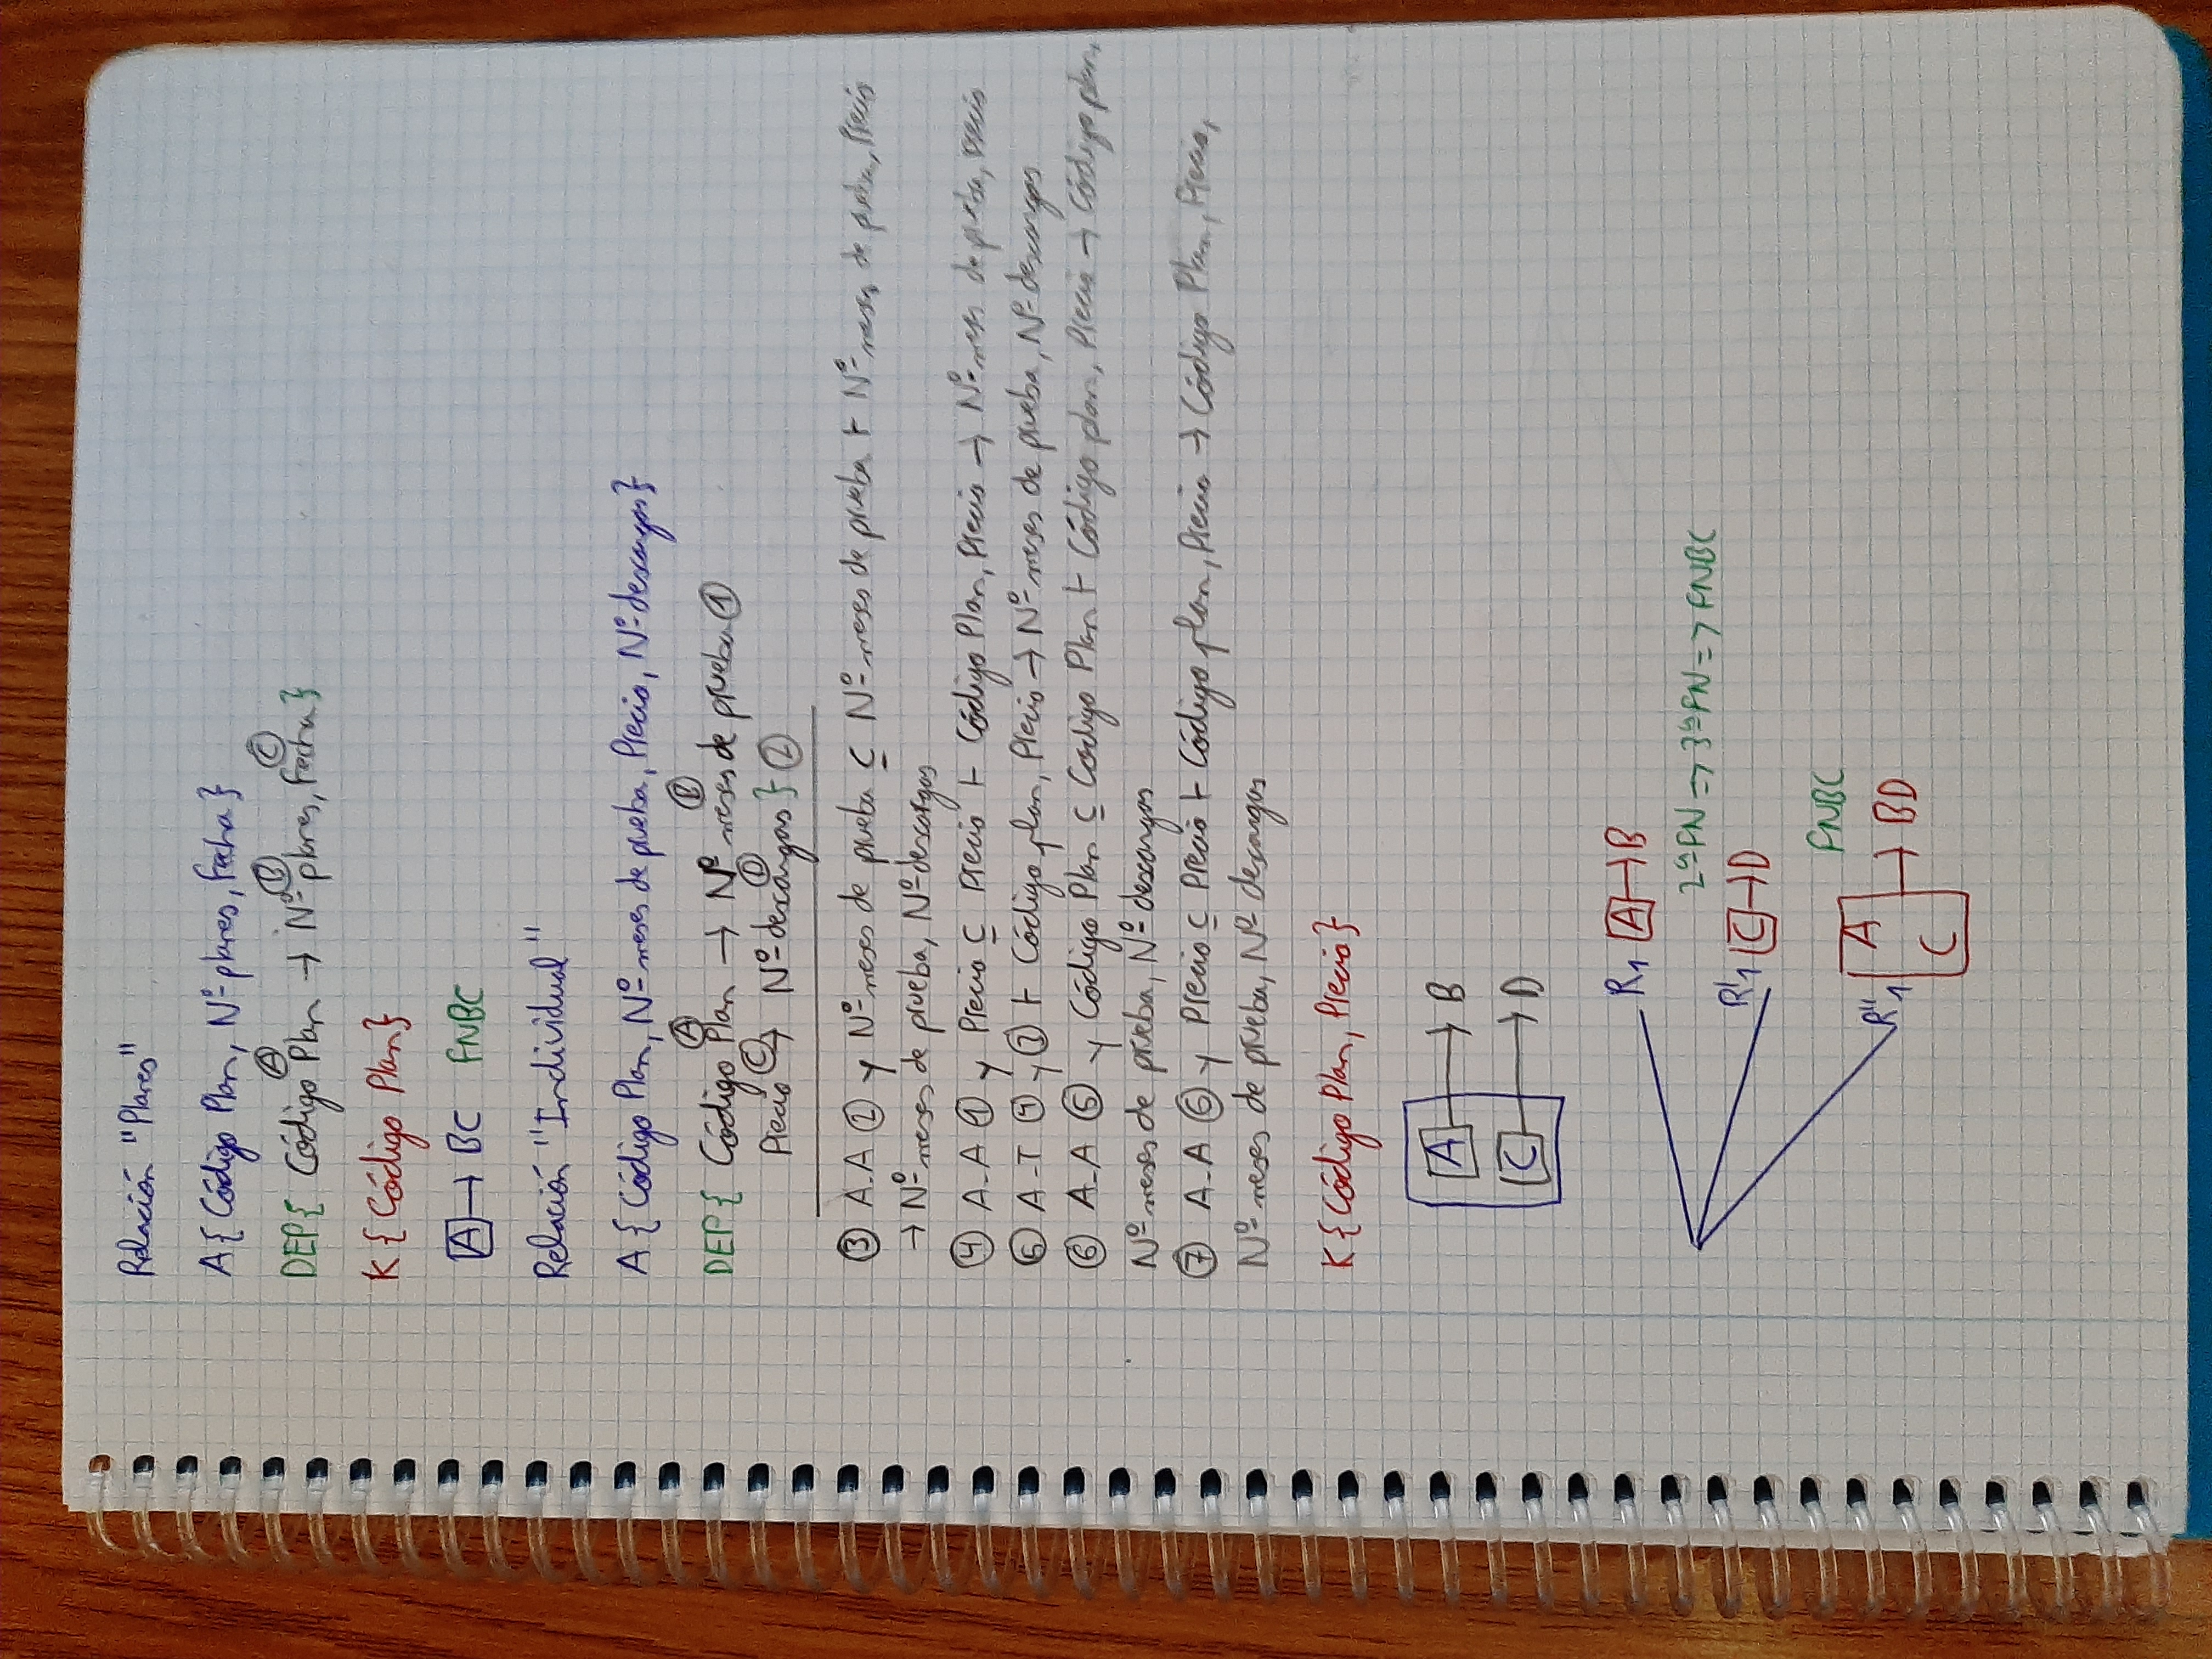 Relación "Planes"
A{ Código Plan, Nº planes, Fecha }
A B C
DEP{ Código Plan → Nº planes, Fecha }
K { Código Plan }
A → BC FNBC
Relación "Individual"
A { Código Plan, Nº meses de prueba, Precio, Nº descargas }
A B
DEP { Código Plan → Nº meses de prueba ①
C D
Precio → Nº descargas } ②
③ A.A ② y Nº meses de prueba ⊆ Nº meses de prueba ⊢ Nº meses de prueba, Precio
→ Nº meses de prueba, Nº descargas
④ A-A ① y Precio ⊆ Precio ⊢ Código Plan, Precio → Nº meses de prueba, Precio
⑤ A-T ④ y ③ ⊢ Código plan, Precio → Nº meses de prueba, Nº descargas
⑥ A-A ⑤ y Código Plan ⊆ Codigo Plan ⊢ Código plan, Precio → Código plan,
Nº meses de prueba, Nº descargas
⑦ A-A ⑥ y Precio ⊆ Precio ⊢ Código plan, Precio → Código Plan, Precio,
Nº meses de prueba, Nº descargas
K { Código Plan, Precio }
A → B
C → D
R1 A → B
2ªFN => 3ªFN => FNBC
R'1 C → D
FNBC
A
R''1 → BD
C